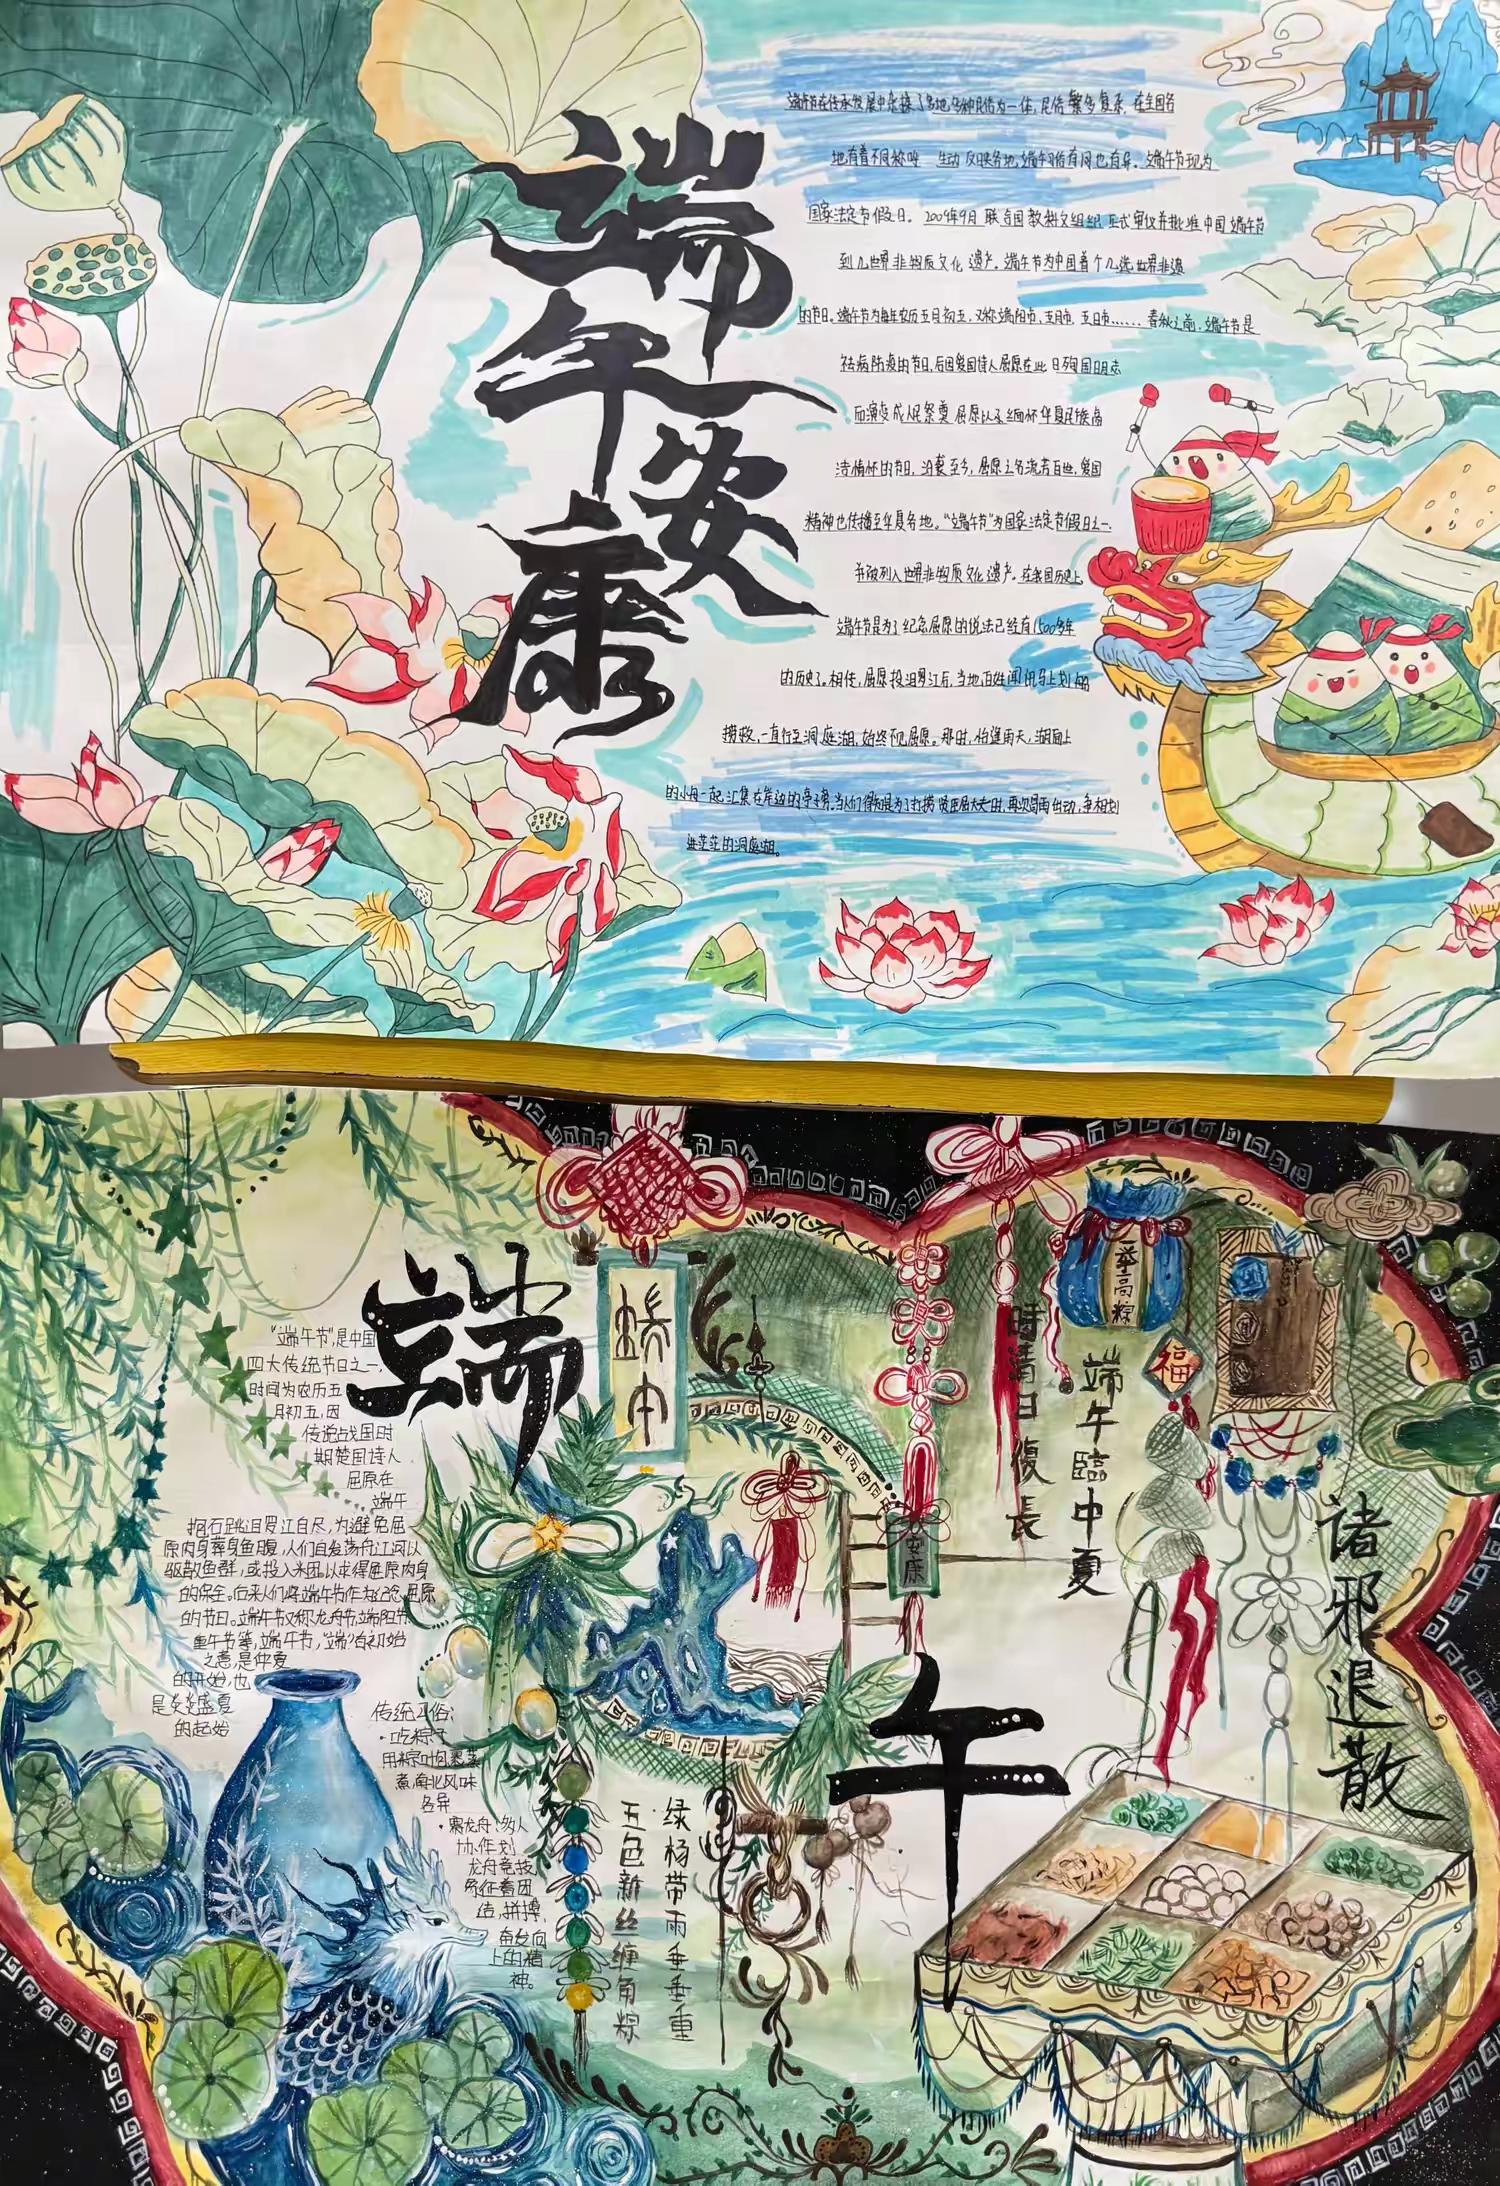 端午安康
端午节在传承发展中杂揉了多地多种民俗为一体,民俗繁多复杂,在全国各
地有着不同称呼 生动反映各地,端午习俗有同也有异。端午节现为
国家法定节假日。2009年9月联合国教科文组织正式审议并批准中国端午节
到几世界非物质文化遗产。端午节为中国首个几选世界非遗
的节日。端午节为每年农历五月初五,又称端阳节,五月节,五日节……春秋之前,端午节是
祛病防疫的节日,后因爱国诗人屈原在此日殉国明志
而演变成人民祭奠屈原以及缅怀华夏民族高
洁情怀的节日,沿袭至今,屈原之名流芳百世,爱国
精神也传播至华夏各地。“端午节”为国家法定节假日之一,
并被列入世界非物质文化遗产。在我国历史上,
端午节是为了纪念屈原的说法已经有1500多年
的历史了。相传,屈原投汨罗江后,当地百姓闻讯马上划船
捞救,一直行至洞庭湖,始终不见屈原。那时,恰逢雨天,湖面上
的小舟一起汇集在岸边的亭子旁,当人们得知是为了打捞贤臣屈大夫时,再次冒雨出动,争相划
进茫茫的洞庭湖。
端
午
“端午节”,是中国
四大传统节日之一,
时间为农历五
月初五,因
传说战国时
期楚国诗人
屈原在
端午
抱石跳汨罗江自尽,为避免屈
原肉身葬身鱼腹,人们自发荡舟江河以
驱散鱼群,或投入米团,以求得屈原肉身
的保全。后来人们将端午节作为纪念屈原
的节日。端午节又称龙舟节,端阳节,
重午节等,端午节,“端”有初始
之意,是仲夏
的开始,也
是炎炎盛夏
的起始
传统习俗:
·吃粽子
用粽叶包裹蒸
煮,南北风味
各异
·赛龙舟:多人
协作划
龙舟竞技,
象征着团
结,拼搏,
奋发向
上的精
神。
绿杨带雨垂垂重
五色新丝缠角粽
安康
一举高粽
福
端午臨中夏
時清日復長
诸邪退散